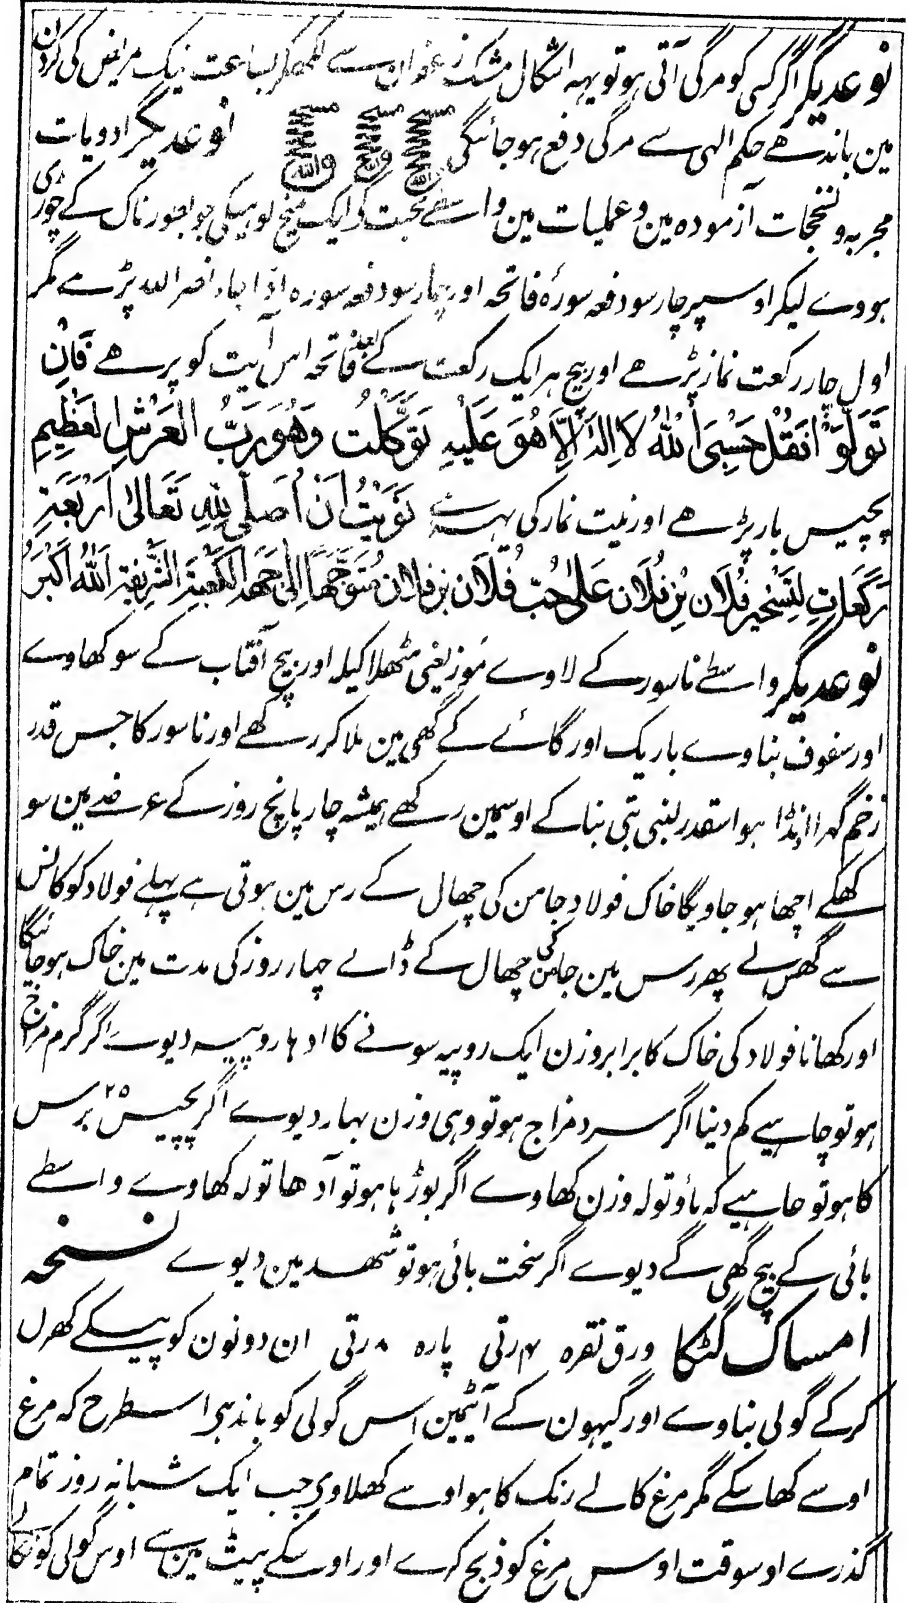 نوعدیگر اگر کسی کو مرگی آتی ہو تو یہہ اشکال مشک زعفران سے لکھکر بساعت نیک مریض کی گردن
مین باندھے حکم الہی سے مرگی دفع ہو جائیگی نوعدیگر ادویات
مجربہ و نسخجات آزمودہ مین و عملیات مین واسطے محبت کی ایک میخ لوہیکی جو بطور ناک کے چوڑی
ہووے لیکر اوسپر چار سو دفعہ سورۂ فاتحہ اور چار سو دفعہ سورہ اذا جاء نصر اللہ پڑہے مگر
اول چار رکعت نماز پڑھے اور بیچ ہر ایک رکعت کے بعد فاتحہ اس آیت کو پرھے فَاِنْ
تَوَلَّوْا فَقُلْ حَسْبِیَ اللّٰهُ لَا اِلٰهَ اِلَّا هُوَ عَلَیْهِ تَوَکَّلْتُ وَهُوَ رَبُّ الْعَرْشِ الْعَظِیْمِ
پچیس بار پڑھے اور نیت نماز کی یہہ ہے نَوَیْتُ اَنْ اُصَلِّیَ لِلّٰهِ تَعَالٰی اَرْبَعَةَ
رَکَعَاتٍ لِتَسْخِیْرِ فُلَان بْنِ فُلَان عَلٰی حُبِّ فُلَان بْنِ فلان مُتَوَجِّهًا اِلٰی جِهَةِ الْکَعْبَةِ الشَّرِیْفَةِ اَللّٰهُ اَکْبَرُ
نوعدیگر واسطے ناسور کے لاوے موز یعنی مٹھلا کیلہ اور بیچ آفتاب کے سوکھاوے
اور سفوف بناوے باریک اور گائے کے گھی مین ملا کر رکھے اور ناسور کا جس قدر
زخم گہرا اونڈا ہو اسقدر لنبی بتی بنا کے اوسمین رکھے ہمیشہ چار پانچ روز کے عرصے مین سو
کھکے اچھا ہو جاویگا خاک فولاد جامن کی چھال کے رس مین ہوتی ہے پہلے فولاد کو کانس
سے گھس لے پھر رس مین جامن کی چھال کے ڈالے چہار روز کی مدت مین خاک ہو جائیگا
اور کھانا فولاد کی خاک کا برابر وزن ایک روپیہ سونے کا ادہا روپیہ دیوے اگر گرم مزاج
ہو تو چاہیے کم دینا اگر سرد مزاج ہو تو وہی وزن بہار دیوے اگر پچیس ۲۵ برس
کا ہو تو چاہیے کہ پاؤ تولہ وزن کھاوے اگر بوڑہا ہو تو آدھا تولہ کھاوے واسطے
بائی کے بیچ گھی کے دیوے اگر سخت بائی ہو تو شہد مین دیوے نسخہ
امساک گٹکا ورق نقرہ ۴ رتی پارہ ۸ رتی ان دونون کو پیسکے کھرل
کرکے گولی بناوے اور گیہون کے آٹیمین اس گولی کو باندہے اسطرح کہ مرغ
اوسے کھا سکے مگر مرغ کالے رنگ کا ہو اوسے کھلاوی جب ایک شبانہ روز تمام
گذرے اوسوقت اوس مرغ کو ذبح کرے اور اوسکے پیٹ مین سے اوس گولی کو نکالے